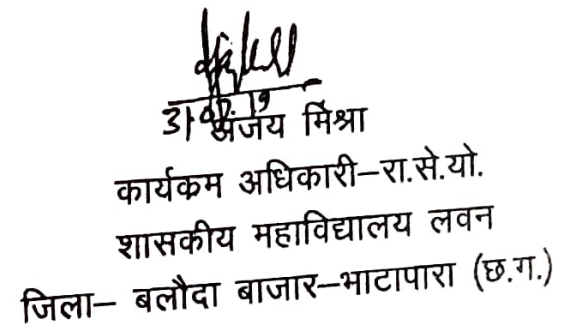 संजय मिश्रा
कार्यक्रम अधिकारी–रा.से.यो.
शासकीय महाविद्यालय लवन
जिला– बलौदा बाजार–भाटापारा (छ.ग.)